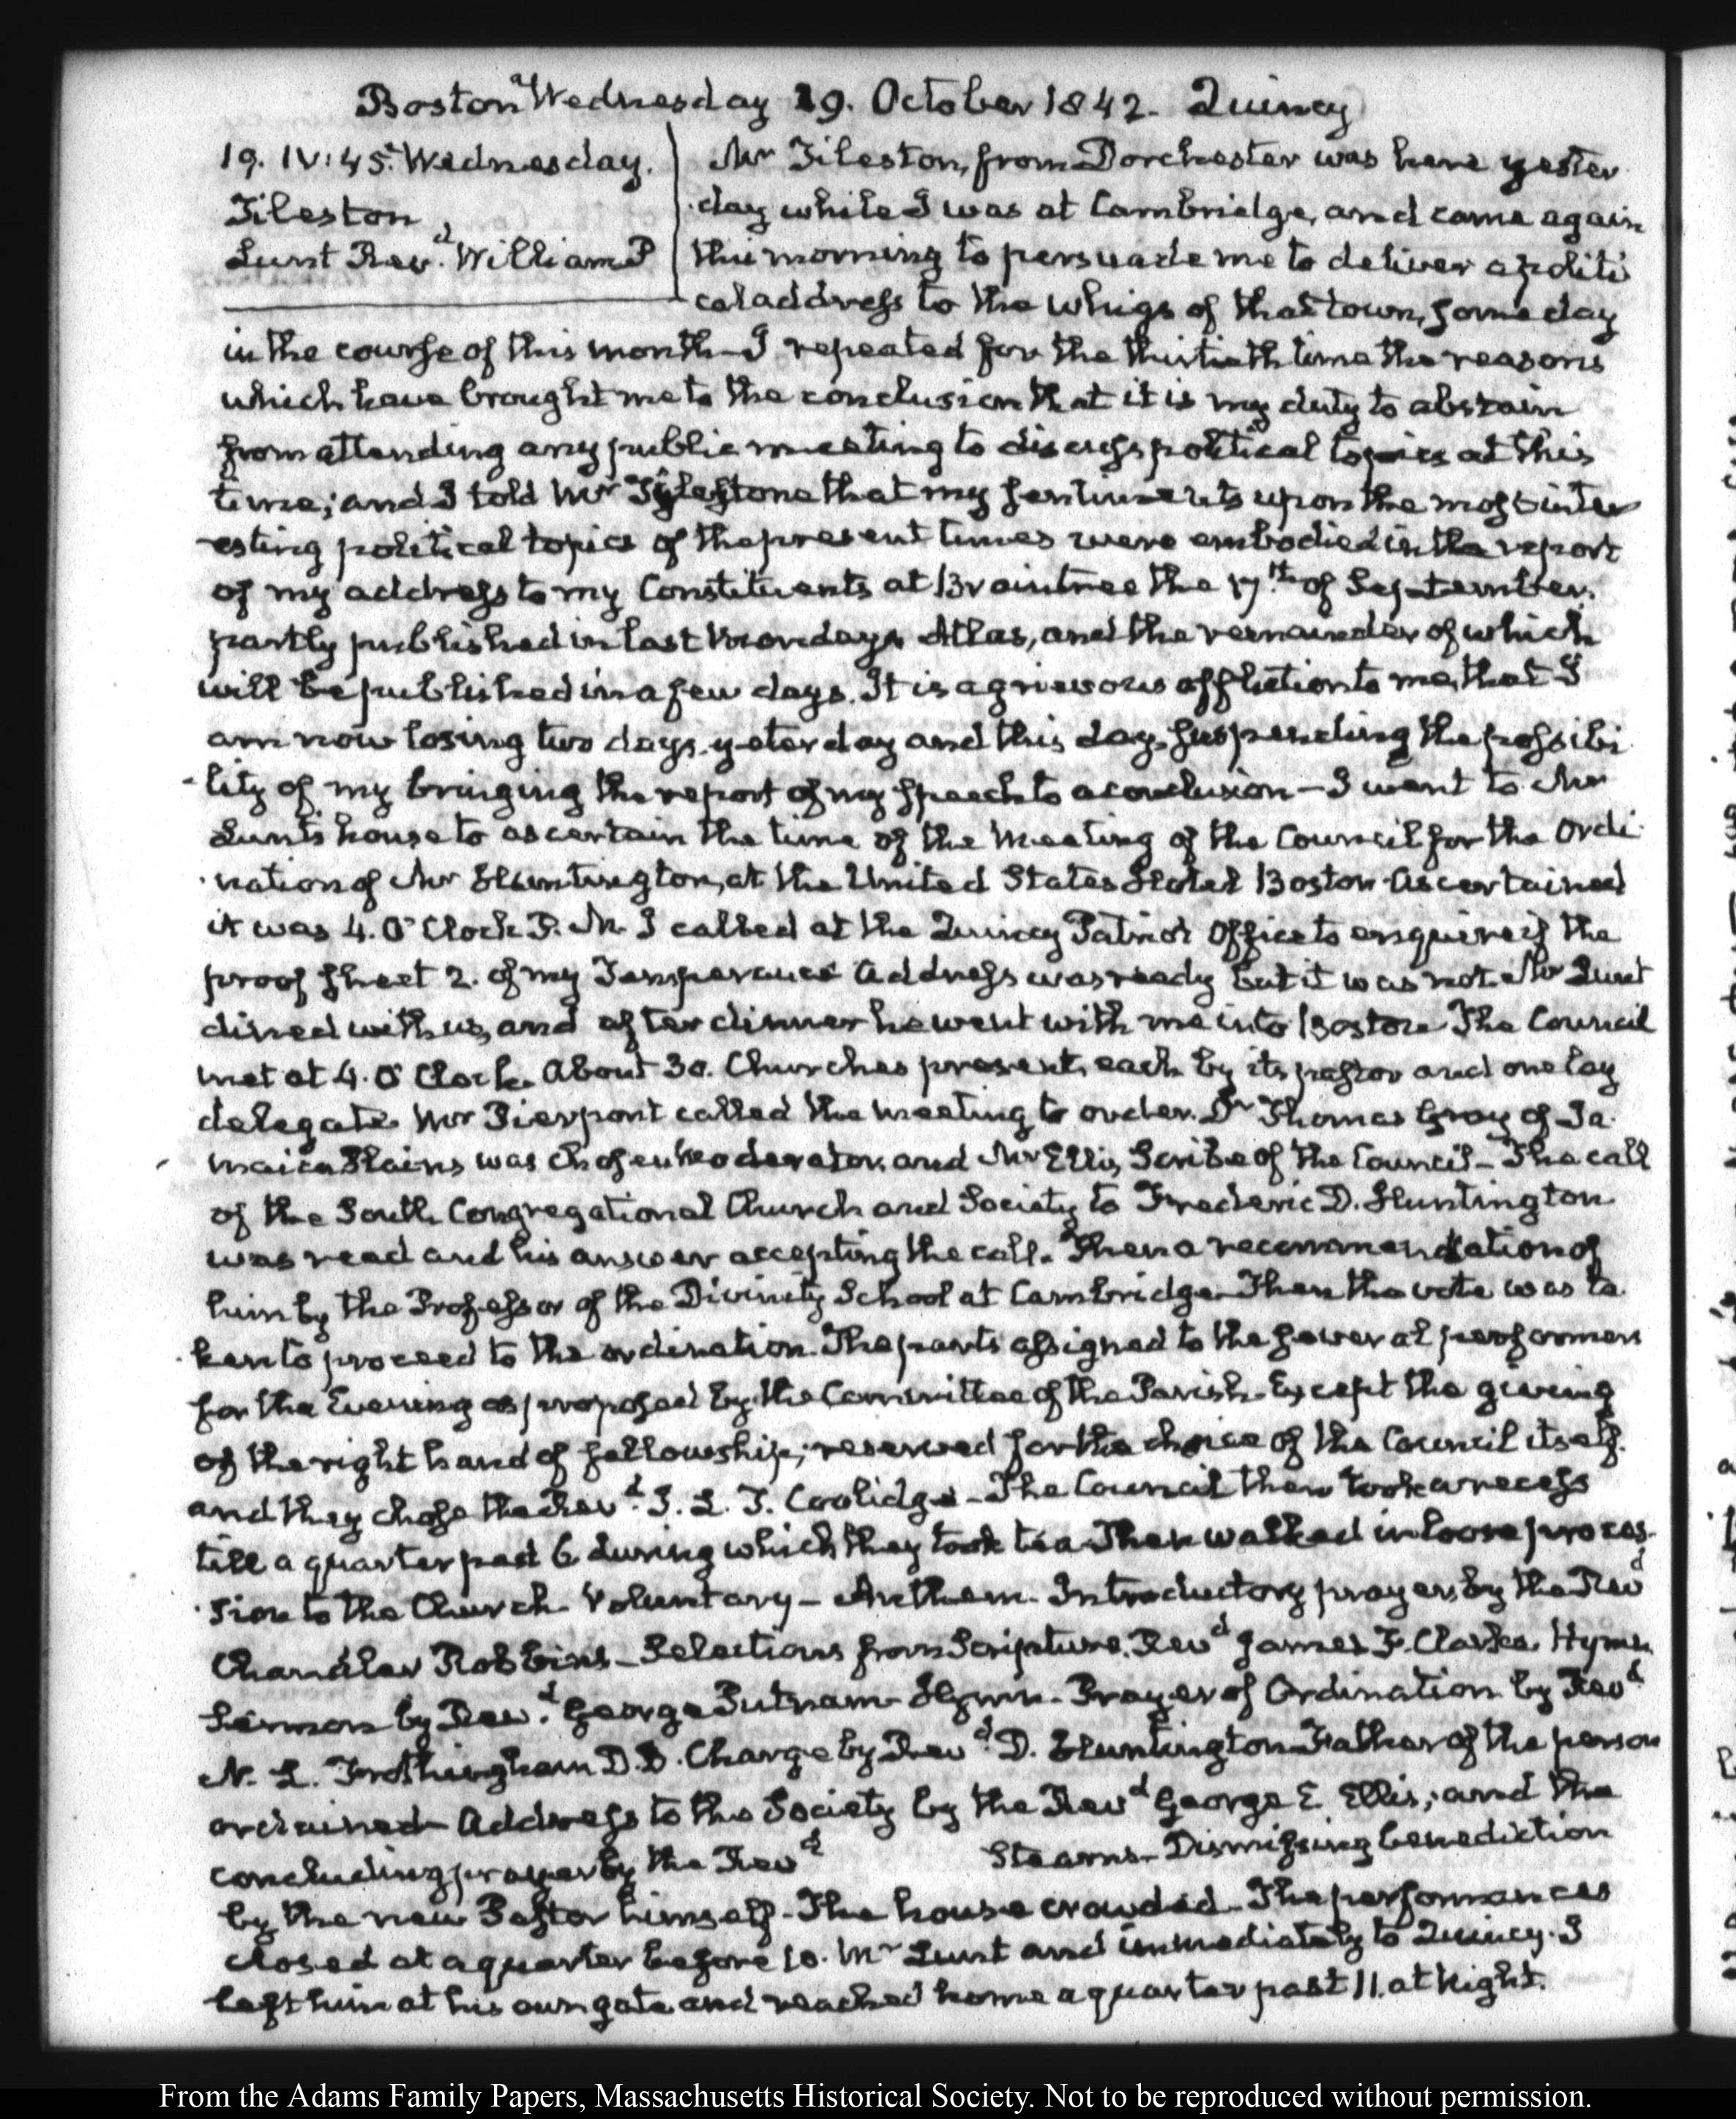 Boston & Wednesday 19. October 1842. Quincy
19. IV:45. Wednesday.
Tileston
Lunt Revd. William P
Mr Tileston, from Dorchester was here yester
day while I was at Cambridge, and came again
this morning to persuade me to deliver a politi
cal address to the Whigs of that town, some day
in the course of this month—I repeated for the thirtieth time the reasons
which have brought me to the conclusion that it is my duty to abstain
from attending any public meeting to discuss political topics at this
time; and I told Mr Tylestone that my sentiments upon the most inter
esting political topics of the present times were embodied in the report
of my address to my Constituents at Braintree the 17th. of September.
partly published in last Monday's Atlas, and the remainder of which
will be published in a few days. It is a grievous affliction to me, that I
am now losing two days, yesterday and this day, suspending the possibi
lity of my bringing the report of my speech to a conclusion—I went to Mr
Lunt's house to ascertain the time of the Meeting of the Council for the Ordi
nation of Mr Huntington, at the United States Hotel Boston. Ascertained
it was 4. O'Clock P. M. I called at the Quincy Patriot Office to enquire if the
proof sheet 2. of my Temperance Address was ready but it was not. Mr Lunt
dined with us, and after dinner he went with me into Boston. The Council
met at 4. O'Clock. About 30. Churches present, each by its pastor and one lay
delegate. Mr Pierpont called the meeting to order. Dr Thomas Gray of Ja
maica Plains was chosen Moderator, and Mr Ellis, Scribe of the Council—The call
of the South Congregational Church and Society to Frederic D. Huntington
was read and his answer accepting the call. Then a recommendation of
him by the Professor of the Divinity School at Cambridge. Then the vote was ta
ken to proceed to the ordination. The parts assigned to the several performers
for the Evening as proposed by the Committee of the Parish. Except the giving
of the right hand of fellowship; reserved for the choice of the Council itself.
and they chose the Revd. J. I. T. Coolidge—The Council then took a recess
till a quarter past 6 during which they took tea. Then walked in loose proces
sion to the Church. Voluntary—Anthem. Introductory prayer, by the Revd
Chandler Robbins—Selections from Scripture. Revd James F. Clarke. Hymn
Sermon by Revd. George Putnam—Hymn. Prayer of Ordination by Revd
N. L. Frothingham D.D. Charge by Revd. D. Huntington Father of the person
ordained—Address to the Society by the Revd George E Ellis; and the
concluding prayer by the Revd Stearns—Dismissing benediction
by the new Pastor himself—The house crowded. The performances
closed at a quarter before 10. Mr Lunt and immediately to Quincy. I
left him at his own gate and reached home a quarter past 11. at Night.
From the Adams Family Papers, Massachusetts Historical Society. Not to be reproduced without permission.